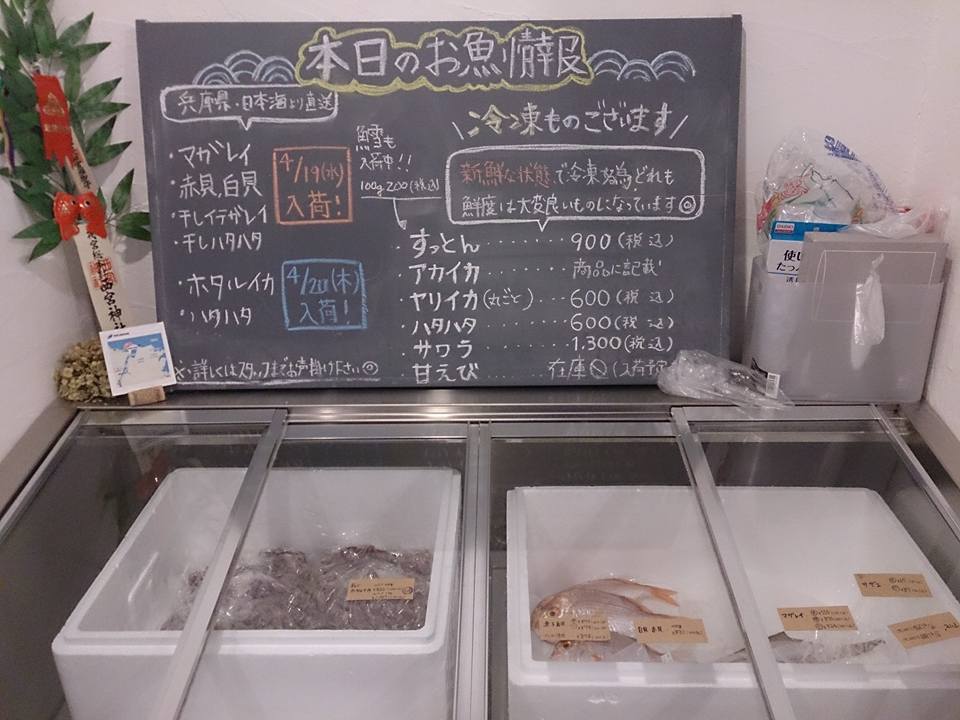 本日のお魚情報
兵庫県・日本海より直送
・マガレイ
・赤貝,白貝
・干しイテガレイ
・干しハタハタ
4/19(水)
入荷!
・ホタルイカ
・ハタハタ
4/20(木)
入荷!
詳しくはスタッフまでお声掛け下さい◎
鱈も
入荷中!!
100g 200(税込)
\冷凍ものございます/
新鮮な状態で冷凍した為どれも
鮮度は大変良いものになっています◎
・すっとん・・・・・・・900(税込)
・アカイカ・・・・・・・商品に記載!
・ヤリイカ(丸ごと)・・・600(税込)
・ハタハタ・・・・・・・600(税込)
・サワラ・・・・・・・1,300(税込)
・甘えび・・・・・・・在庫
(入荷予定
西宮神社
使い
たっ
マガレイ
サザエ
白貝 赤貝